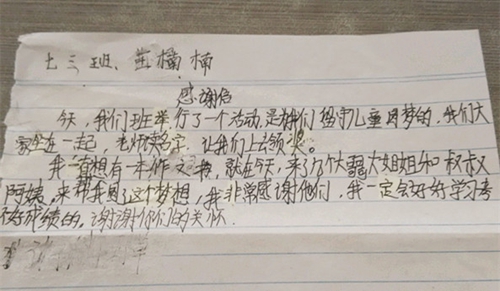 七三班、楠楠
感谢信
今天,我们班举行了一个活动,是帮我们留守儿童圆梦的,我们大
家坐在一起,老师读名字,让我们上去领奖。
我一直想有一本作文书,就在今天,来了几个大哥大姐姐和叔叔
阿姨,来帮我圆了这个梦想,我非常感谢他们,我一定会好好学习考
个好成绩的,谢谢你们的关怀.